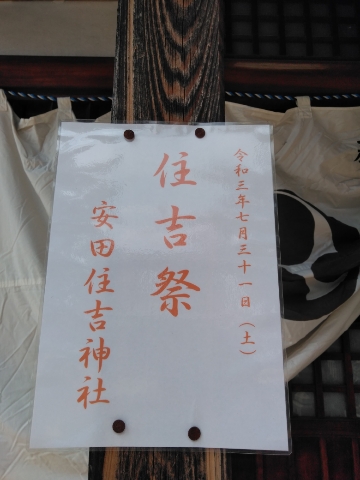 令和三年七月三十一日（土）
住吉祭
安田住吉神社